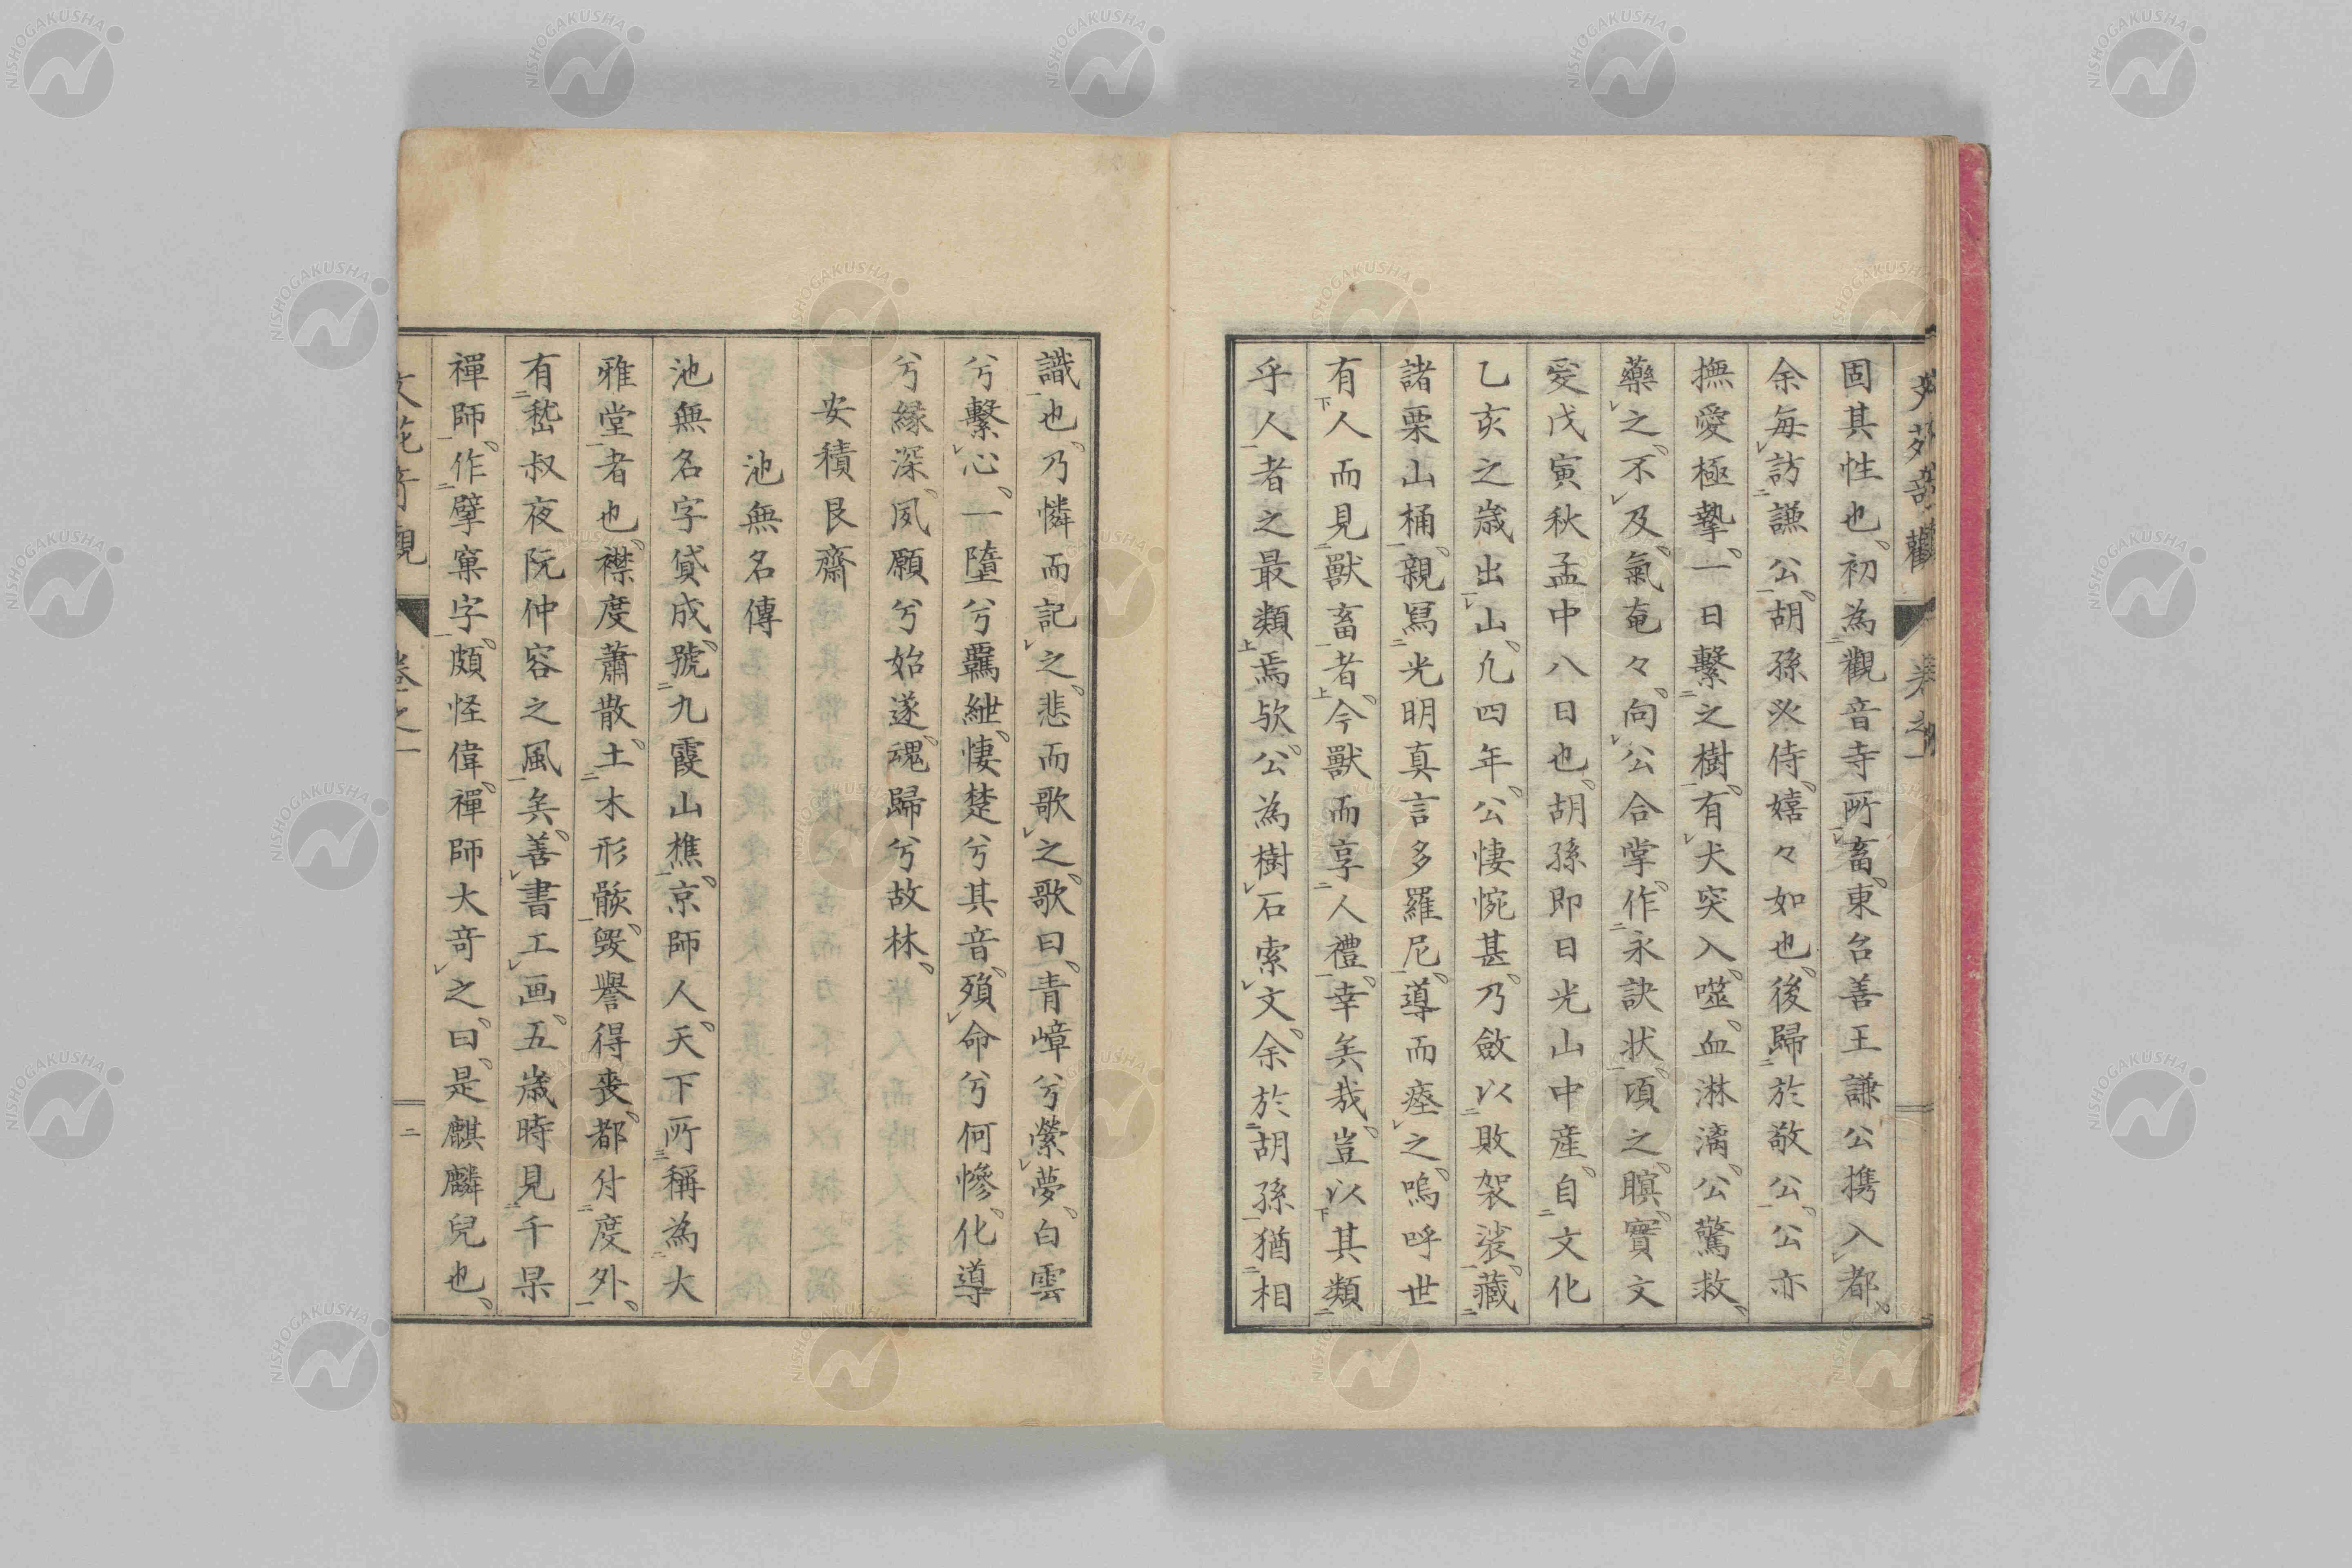 固其性也初為觀音寺所畜東台善王謙公携入都
余每訪謙公胡孫必侍嬉々如也後歸於敬公公亦
撫愛極摯一日繫之樹有犬突入噬血淋漓公驚救
藥之不及氣奄々向公合掌作永訣状頃之瞑實文
爰戊寅秋孟中八日也胡孫即日光山中産自文化
乙亥之歳出山凢四年公悽惋甚乃斂以敗袈裟藏
諸栗山桶親冩光明真言多羅尼導而瘞之嗚呼世
有人而見獸畜者今獸而享人禮幸矣哉豈以其類
乎人者之最類焉欤公為樹石索文余於胡孫猶相
識也乃憐而記之悲而歌之歌曰青嶂兮縈夢白雲
兮繫心一墮兮羈紲悽楚兮其音殞命兮何慘化導
兮縁深夙願兮始遂魂歸兮故林
安積艮齋
池無名傳
池無名字貸成號九霞山樵京師人天下所稱為大
雅堂者也襟度蕭散土木形骸毀譽得喪都付度外
有嵇叔夜阮仲容之風矣善書工画五歳時見千杲
禪師作擘窠字頗怪偉禪師大竒之曰是麒麟兒也
文苑竒觀 卷之一 二
NISHOGAKUSHA